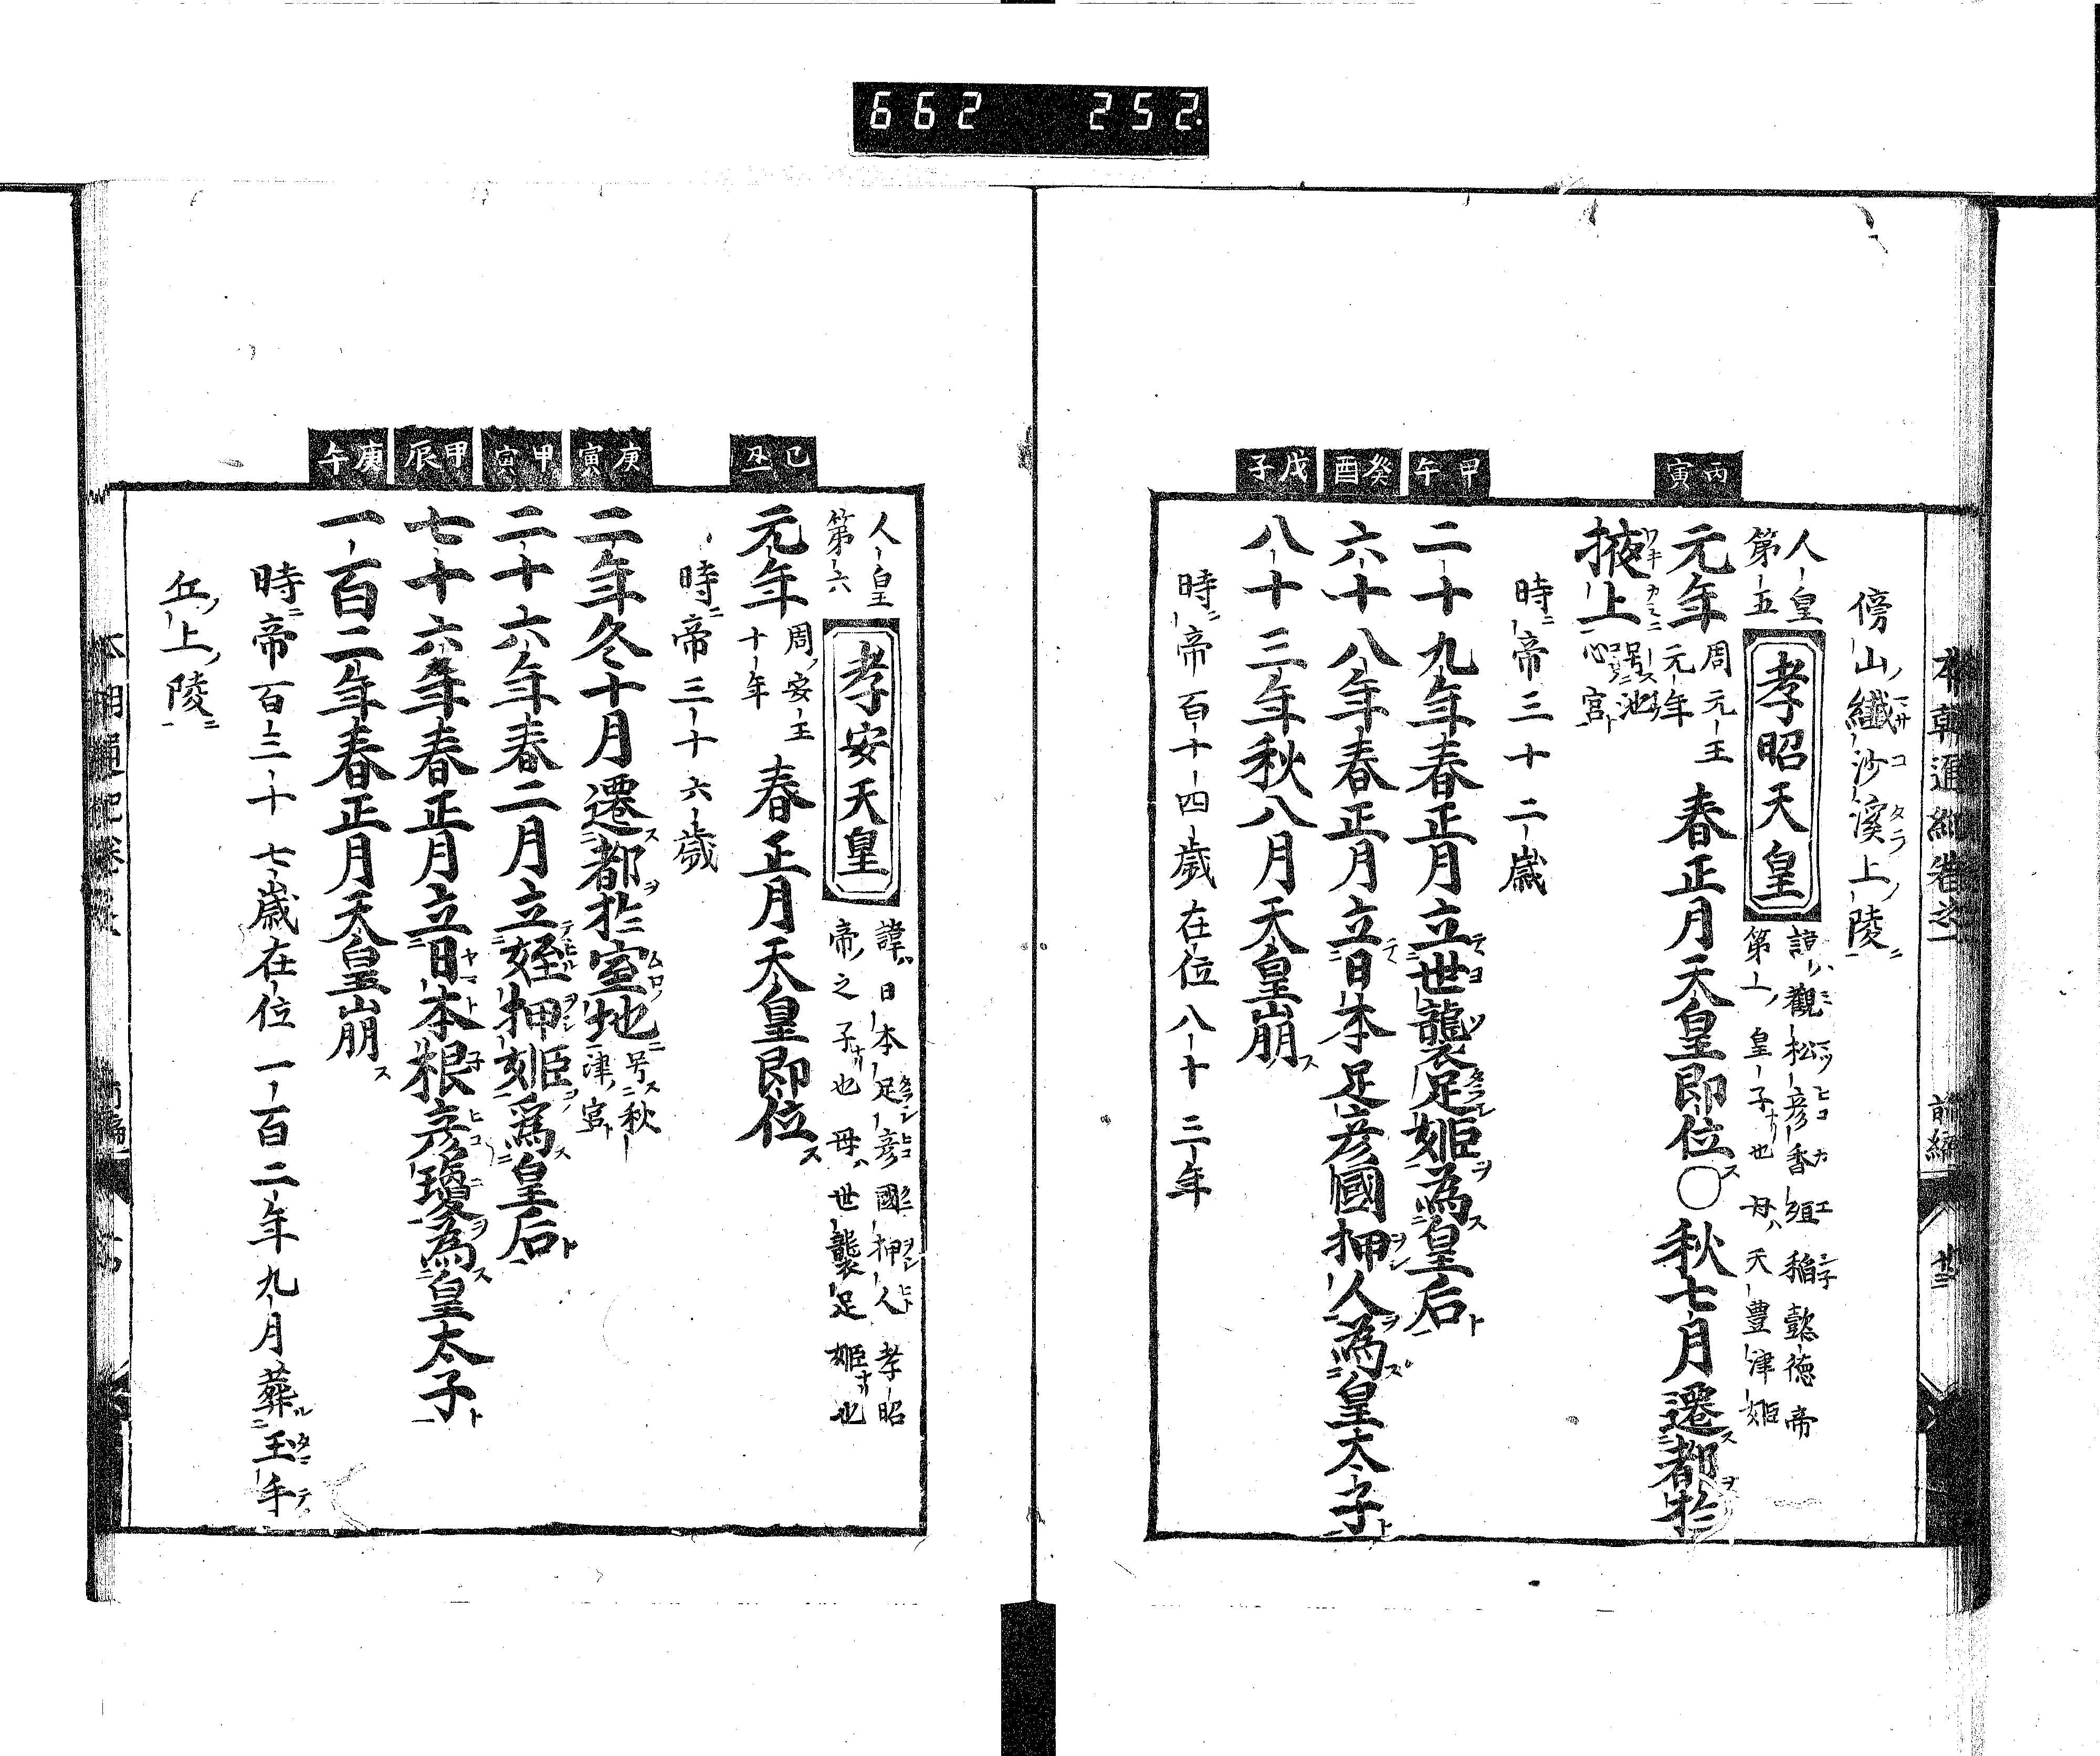 662 252
本朝通紀卷之一 前編 廿三
傍山纎沙溪上陵
人皇第五 孝昭天皇 諱觀松彦香殖稲懿德帝第一皇子也母天豊津姫
丙寅
元年 周元王元年 春正月天皇即位〇秋七月遷都於
掖上 号池心宮
時帝三十二歳
甲午
二十九年春正月立世襲足姫為皇后
癸酉
六十八年春正月立日本足彦國押人為皇太子
戊子
八十三年秋八月天皇崩
時帝百十四歳在位八十三年
人皇第六 孝安天皇 諱日本足彦國押人孝昭帝之子也母世襲足姫也
己丑
元年 周安王十年 春正月天皇即位
時帝三十六歳
庚寅
二年冬十月遷都於室地 号秋津宮
甲寅
二十六年春二月立姪押姫爲皇后
甲辰
七十六年春正月立日本根彦瓊為皇太子
庚午
一百二年春正月天皇崩
時帝百三十七歳在位一百二年九月葬玉手
丘上陵